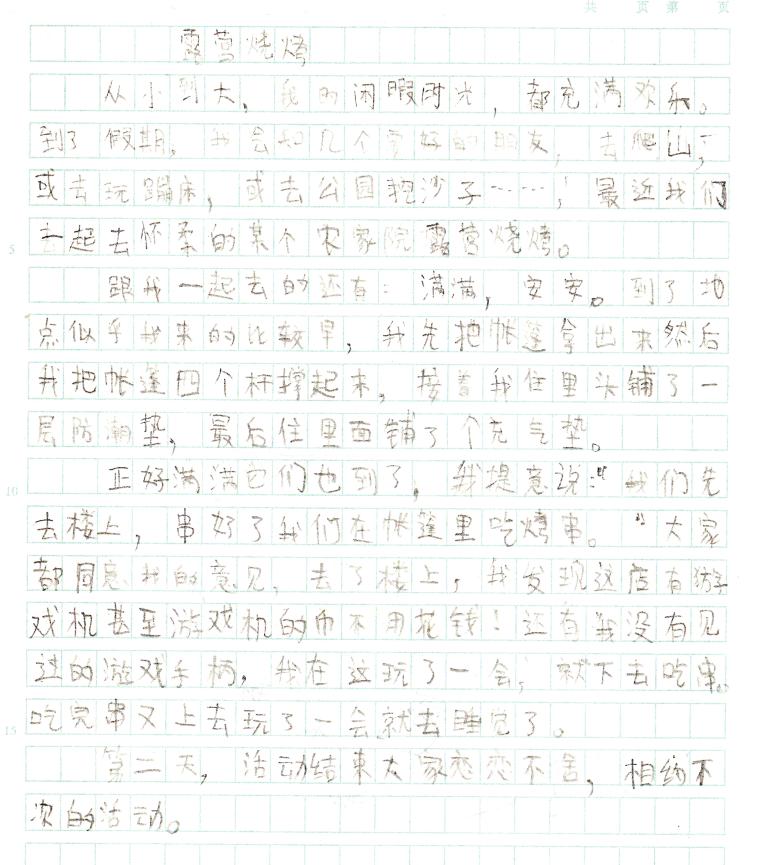 共 页 第 页
露营烧烤
从小到大，我的闲暇时光，都充满欢乐。
到了假期，我会和几个要好的朋友，去爬山，
或去玩蹦床，或去公园挖沙子……；最近我们
5 一起去怀柔的某个农家院露营烧烤。
跟我一起去的还有：满满，安安。到了地
点似乎我来的比较早，我先把帐篷拿出来然后
我把帐篷四个杆撑起来，接着我往里头铺了一
层防潮垫，最后往里面铺了个充气垫。
10 正好满满它们也到了，我提意说：“我们先
去楼上，串好了我们在帐篷里吃烤串。”大家
都同意我的意见，去了楼上，我发现这店有游
戏机甚至游戏机的币不用花钱！还有我没有见
过的游戏手柄，我在这玩了一会，就下去吃串。
15 吃完串又上去玩了一会就去睡觉了。
第二天，活动结束大家恋恋不舍，相约下
次的活动。